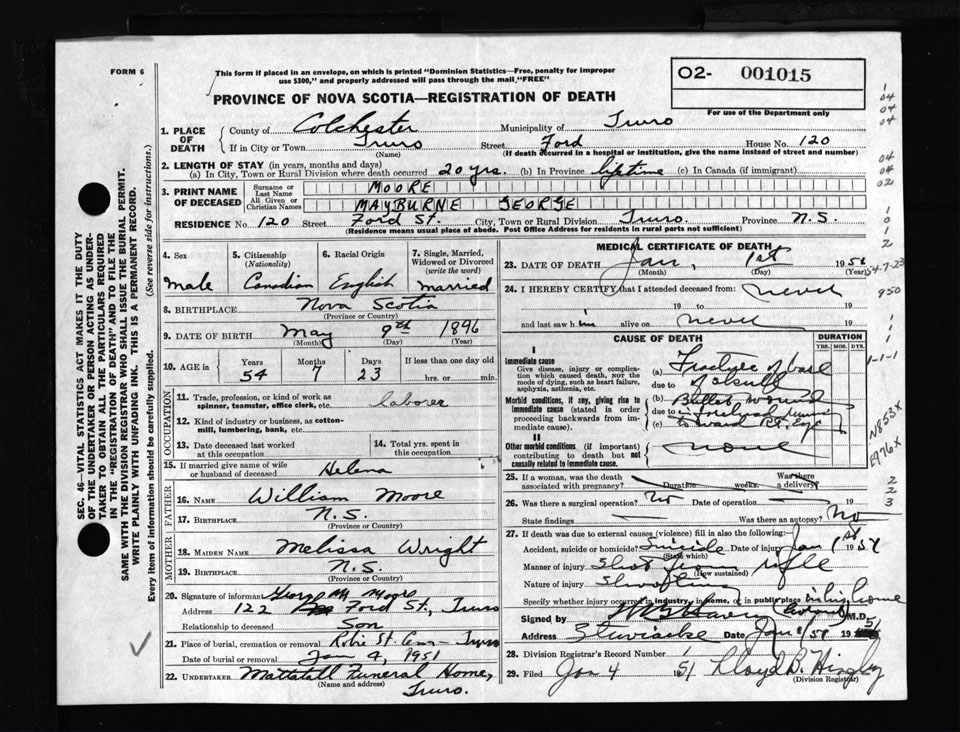 FORM 6
This form if placed in an envelope, on which is printed "Dominion Statistics—Free, penalty for improper
use $300," and properly addressed will pass through the mail "FREE"
O2- 001015
For use of the Department only
PROVINCE OF NOVA SCOTIA—REGISTRATION OF DEATH
1. PLACE OF DEATH { County of Colchester Municipality of Truro
If in City or Town Truro Street Ford House No. 120
(Name) (If death occurred in a hospital or institution, give the name instead of street and number)
2. LENGTH OF STAY (in years, months and days)
(a) In City, Town or Rural Division where death occurred 20 yrs. (b) In Province lifetime (c) In Canada (if immigrant)
3. PRINT NAME OF DECEASED { Surname or Last Name MOORE
All Given or Christian Names MAYBURNE GEORGE
RESIDENCE No. 120 Street Ford St. City, Town or Rural Division Truro. Province N.S.
(Residence means usual place of abode. Post Office Address for residents in rural parts not sufficient)
4. Sex
male
5. Citizenship (Nationality)
Canadian
6. Racial Origin
English
7. Single, Married, Widowed or Divorced (write the word)
married
8. BIRTHPLACE Nova Scotia
(Province or Country)
9. DATE OF BIRTH May 9th 1896
(Month) (Day) (Year)
10. AGE in { Years 54 Months 7 Days 23 If less than one day old
hrs. or min.
OCCUPATION
11. Trade, profession, or kind of work as spinner, teamster, office clerk, etc. laborer
12. Kind of industry or business, as cotton-mill, lumbering, bank, etc.
13. Date deceased last worked at this occupation
14. Total yrs. spent in this occupation
15. If married give name of wife or husband of deceased Helena
FATHER
16. NAME William Moore
17. BIRTHPLACE N.S.
(Province or Country)
MOTHER
18. MAIDEN NAME Melissa Wright
19. BIRTHPLACE N.S.
(Province or Country)
20. Signature of informant George M Moore
Address 122 Ford St., Truro
Relationship to deceased Son
21. Place of burial, cremation or removal Robie St. Cem – Truro
Date of burial or removal Jan 4, 1951
22. UNDERTAKER Mattatall Funeral Home,
(Name and address) Truro.
MEDICAL CERTIFICATE OF DEATH
23. DATE OF DEATH Jan, 1st 1951
(Month) (Day) (Year)
24. I HEREBY CERTIFY that I attended deceased from: never
19 to 19
and last saw him alive on never 19
CAUSE OF DEATH
DURATION
YRS. MOS. DYS.
I
Immediate cause
Give disease, injury or complication which caused death, NOT the mode of dying, such as heart failure, asphyxia, asthenia, etc.
(a) Fracture of base
due to of skull
Morbid conditions, if any, giving rise to immediate cause (stated in order proceeding backwards from immediate cause).
(b) Bullet wound
due to in forehead
(c) toward Rt. Eye
II
Other morbid conditions (if important) contributing to death but not causally related to immediate cause.
none
25. If a woman, was the death associated with pregnancy? Duration weeks. Was there a delivery?
26. Was there a surgical operation? No Date of operation 19
State findings Was there an autopsy? No
27. If death was due to external causes (violence) fill in also the following:
Accident, suicide or homicide? Suicide Date of injury Jan 1st 1951
(State which)
Manner of injury Shot from rifle
(How sustained)
Nature of injury
Specify whether injury occurred in industry, in home, or in public place in his home
Signed by M.D.
Address Stewiacke Date Jan 1/51 19
28. Division Registrar's Record Number 1
29. Filed Jan 4 1951 Lloyd B. Hingley
(Division Registrar)
SEC. 46—VITAL STATISTICS ACT MAKES IT THE DUTY
OF THE UNDERTAKER OR PERSON ACTING AS UNDER-
TAKER TO OBTAIN ALL THE PARTICULARS REQUIRED
IN THE "REGISTRATION OF DEATH" AND TO FILE THE
SAME WITH THE DIVISION REGISTRAR WHO SHALL ISSUE THE BURIAL PERMIT.
WRITE PLAINLY WITH UNFADING INK. THIS IS A PERMANENT RECORD.
Every item of information should be carefully supplied. (See reverse side for instructions.)
04
04
04
04
04
02
1
0
1
2
54-7-23
950
1-1-1
N853X
E976X
2
2
3